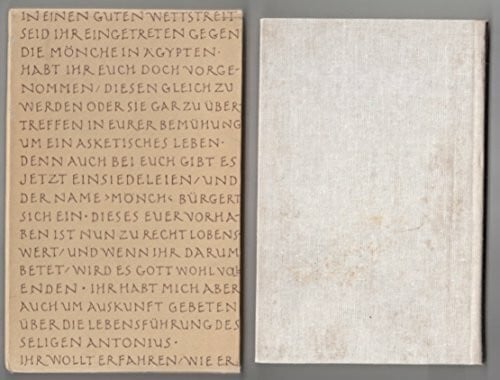 IN EINEN GUTEN WETTSTREIT
SEID IHR EINGETRETEN GEGEN
DIE MÖNCHE IN ÄGYPTEN·
HABT IHR EUCH DOCH VORGE-
NOMMEN/DIESEN GLEICH ZU
WERDEN ODER SIE GAR ZU ÜBER
TREFFEN IN EURER BEMÜHUNG
UM EIN ASKETISCHES LEBEN·
DENN AUCH BEI EUCH GIBT ES
JETZT EINSIEDELEIEN/UND
DER NAME ›MÖNCH‹ BÜRGERT
SICH EIN·DIESES EUER VORHA-
BEN IST NUN ZU RECHT LOBENS
WERT/UND WENN IHR DARUM
BETET/WIRD ES GOTT WOHL VOLL
ENDEN·IHR HABT MICH ABER
AUCH UM AUSKUNFT GEBETEN
ÜBER DIE LEBENSFÜHRUNG DES
SELIGEN ANTONIUS·
IHR WOLLT ERFAHREN/WIE ER